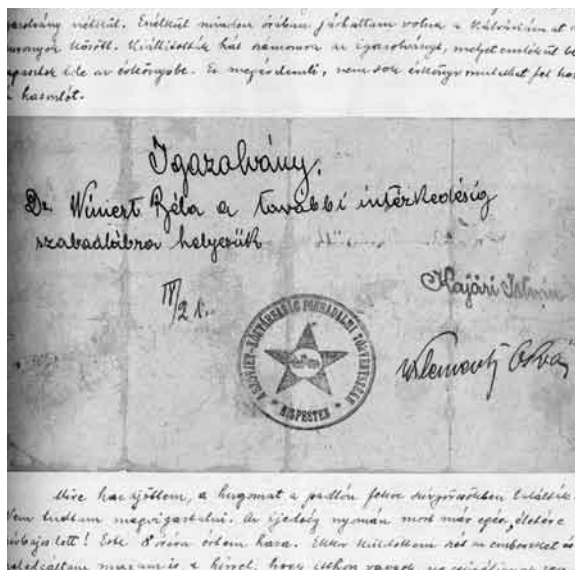 nélkül. Enélkül minden órában járhattam volna a Kálváriám at a
szuronyok között. Kiállították hát számomra az igazolványt, melyet emlékül be
ide az érkönyvbe. Ez megérdemli, nem sok érkönyv mutathat fel ha
hasonlót.
Igazolvány.
Dr. Winiert Béla a további intézkedésig
szabadlábra helyezük
Hajári István
IV/21.
A SZOVJET-KÖZTÁRSASÁG FORRADALMI TÖRVÉNYSZÉK
BUSPESTEN
Mire hazajöttem, a hugomat a padlón fekve szívgörcsökben találták.
Nem tudtam megvigasztalni. Az ijedség nyomán most már egész életére
lett! Este 8 órára értem haza. Ekkor küldöttem az embereket és
magam is a hírrel, hogy itthon vagyok